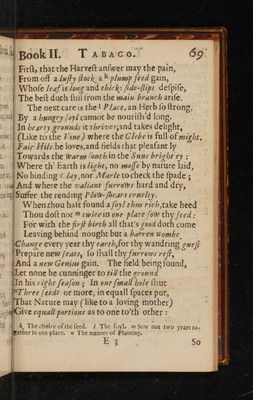 Book II. TABACO. 69
First, that the Harvest answer may the pain,
From oft a lusty stock, a k plump seed gain,
Whose leaf is long and thick: side-slips despise,
The best doth still from the main branch arise.
The next care is the l Place, an Herb so strong,
By a hungry soyl cannot be nourish'd long.
In hearty grounds it thrives, and takes delight,
(Like to the Vine) where the Glebe is full of might.
Fair Hills he loves, and fields that pleasant ly
Towards the warm South in the Suns bright ey:
Where th' Earth is light, no mosse by nature laid,
No binding Clay, nor Marle to check the spade;
And where the valiant furrows hard and dry,
Suffer the rending Plow-shears cruelty.
When thou hast found a soyl thus rich, take heed
Thou dost not m twice in one place sow thy seed:
For with the first birth all that's good doth come
Leaving behind nought but a barren wombe,
Change every year thy earth, for thy wandring guest
Prepare new seats, so shall thy furrows rest,
And a new Genius gain. The field being found,
Let none be cunninger to till the ground
In his right season; In one small hole thus
n Three seeds or more, in equall spaces put,
That Nature may (like to a loving mother)
Give equall portions as to one to'th other:
k The choice of the seed. l The soyl. m Sow not two years to-
gether in one place. n The manner of Planting.
E 3 So